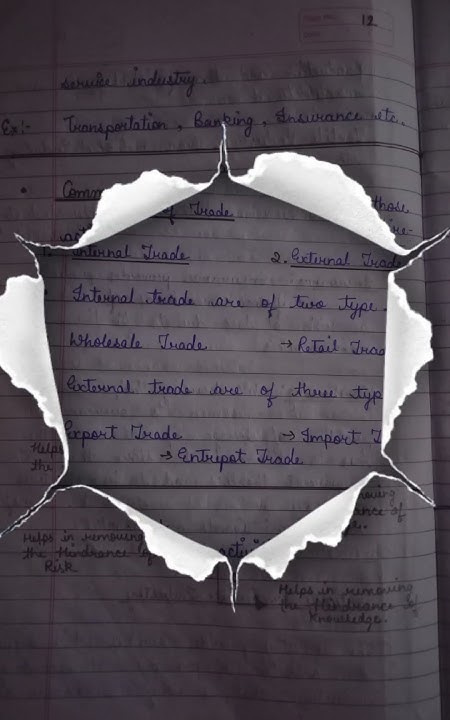 12
service industry.
Ex:- Transportation, Banking, Insurance etc.
those
of Trade
Internal Trade 2. External Trade
Internal trade are of two type.
Wholesale Trade → Retail Trad
External trade are of three typ
Export Trade → Import T
→ Entrepot Trade
Helps in removing
the Hindrance of
Risk
Helps in removing
the Hindrance of
Knowledge.